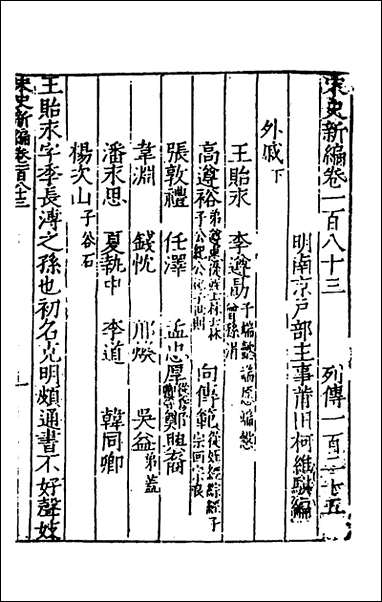 宋史新編卷一百八十三 列傳一百二十五
明南京戶部主事莆田柯維騏編
外戚下
王貽永 李遵勗子端懿 端愿 端慤 曾孫
高遵裕弟遵惠 從姪士林 士林子公紀 公紀子世則 向傳範從姪經 綜 經子宗回 宗良
張敦禮 任澤 孟忠厚 鄭興裔
韋淵 錢忱 邢煥 吳益弟蓋
潘永思 夏執中 李道 韓同卿
楊次山子谷 石
王貽永字季長溥之孫也初名克明頗通書不好聲妓
宋史新編卷一百八十三 一